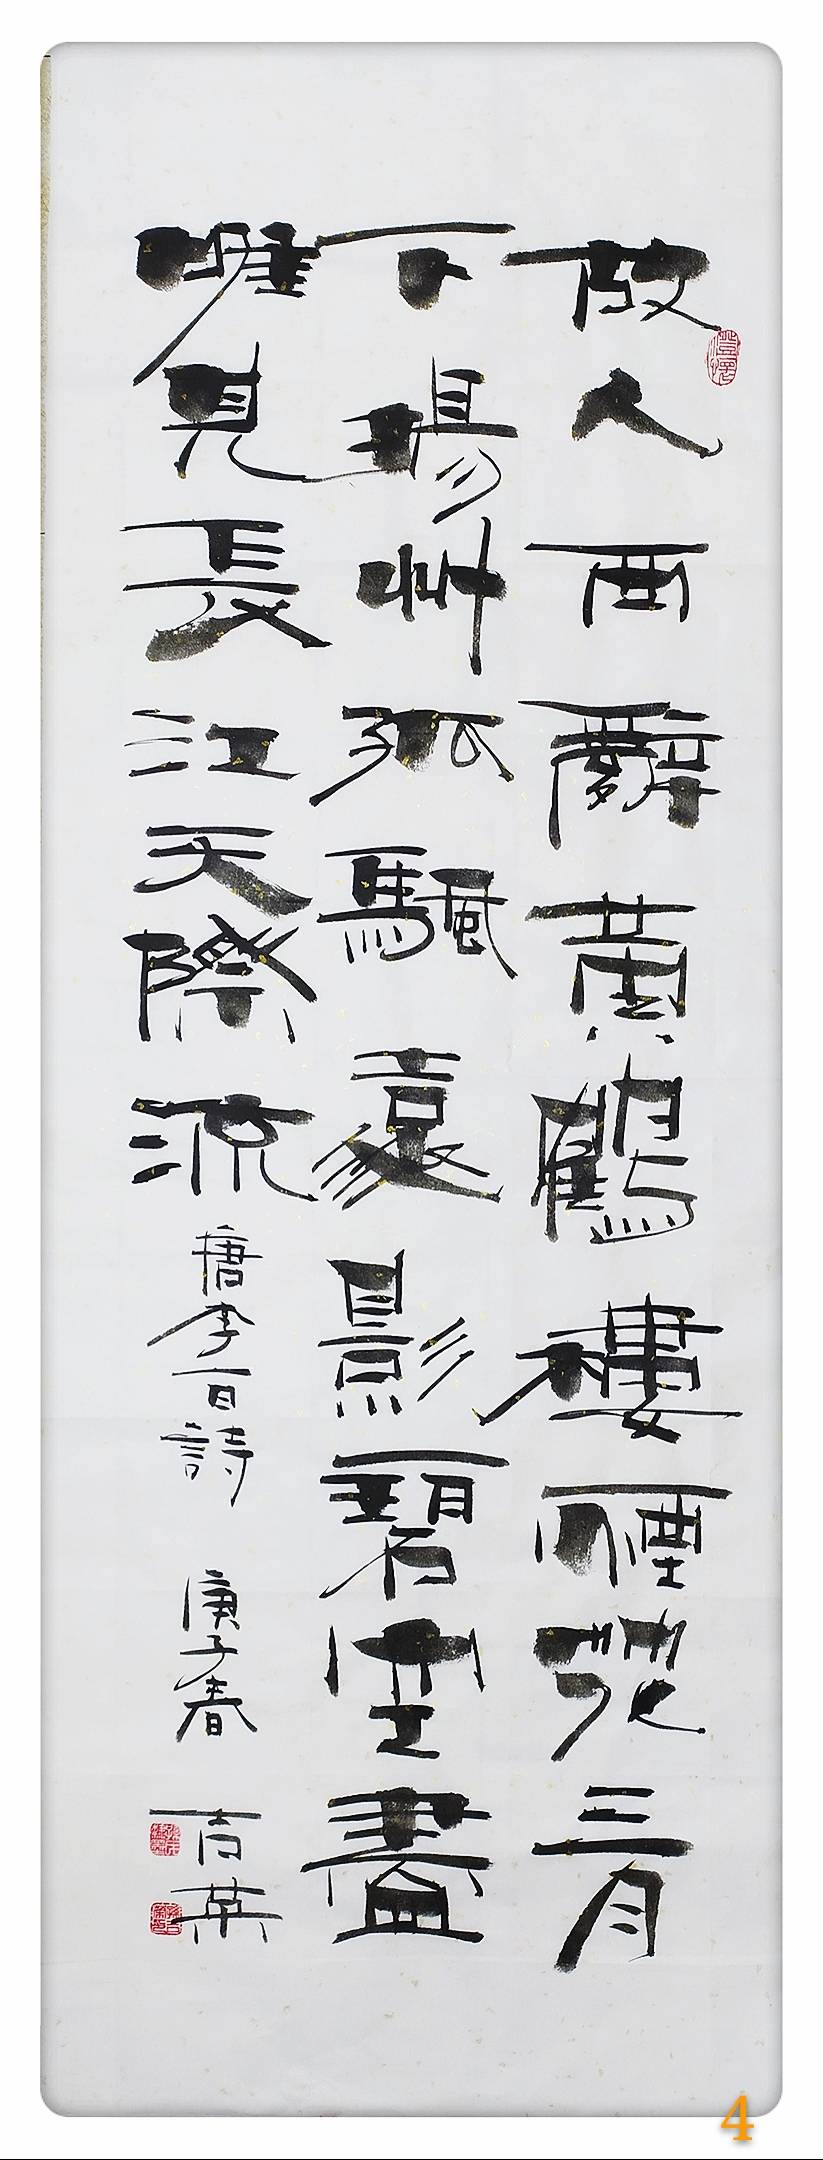 故人西辭黃鶴樓煙花三月
下揚州孤颿遠影碧空盡
唯見長江天際流 唐李白詩 庚子春 吉英
澄懷
4